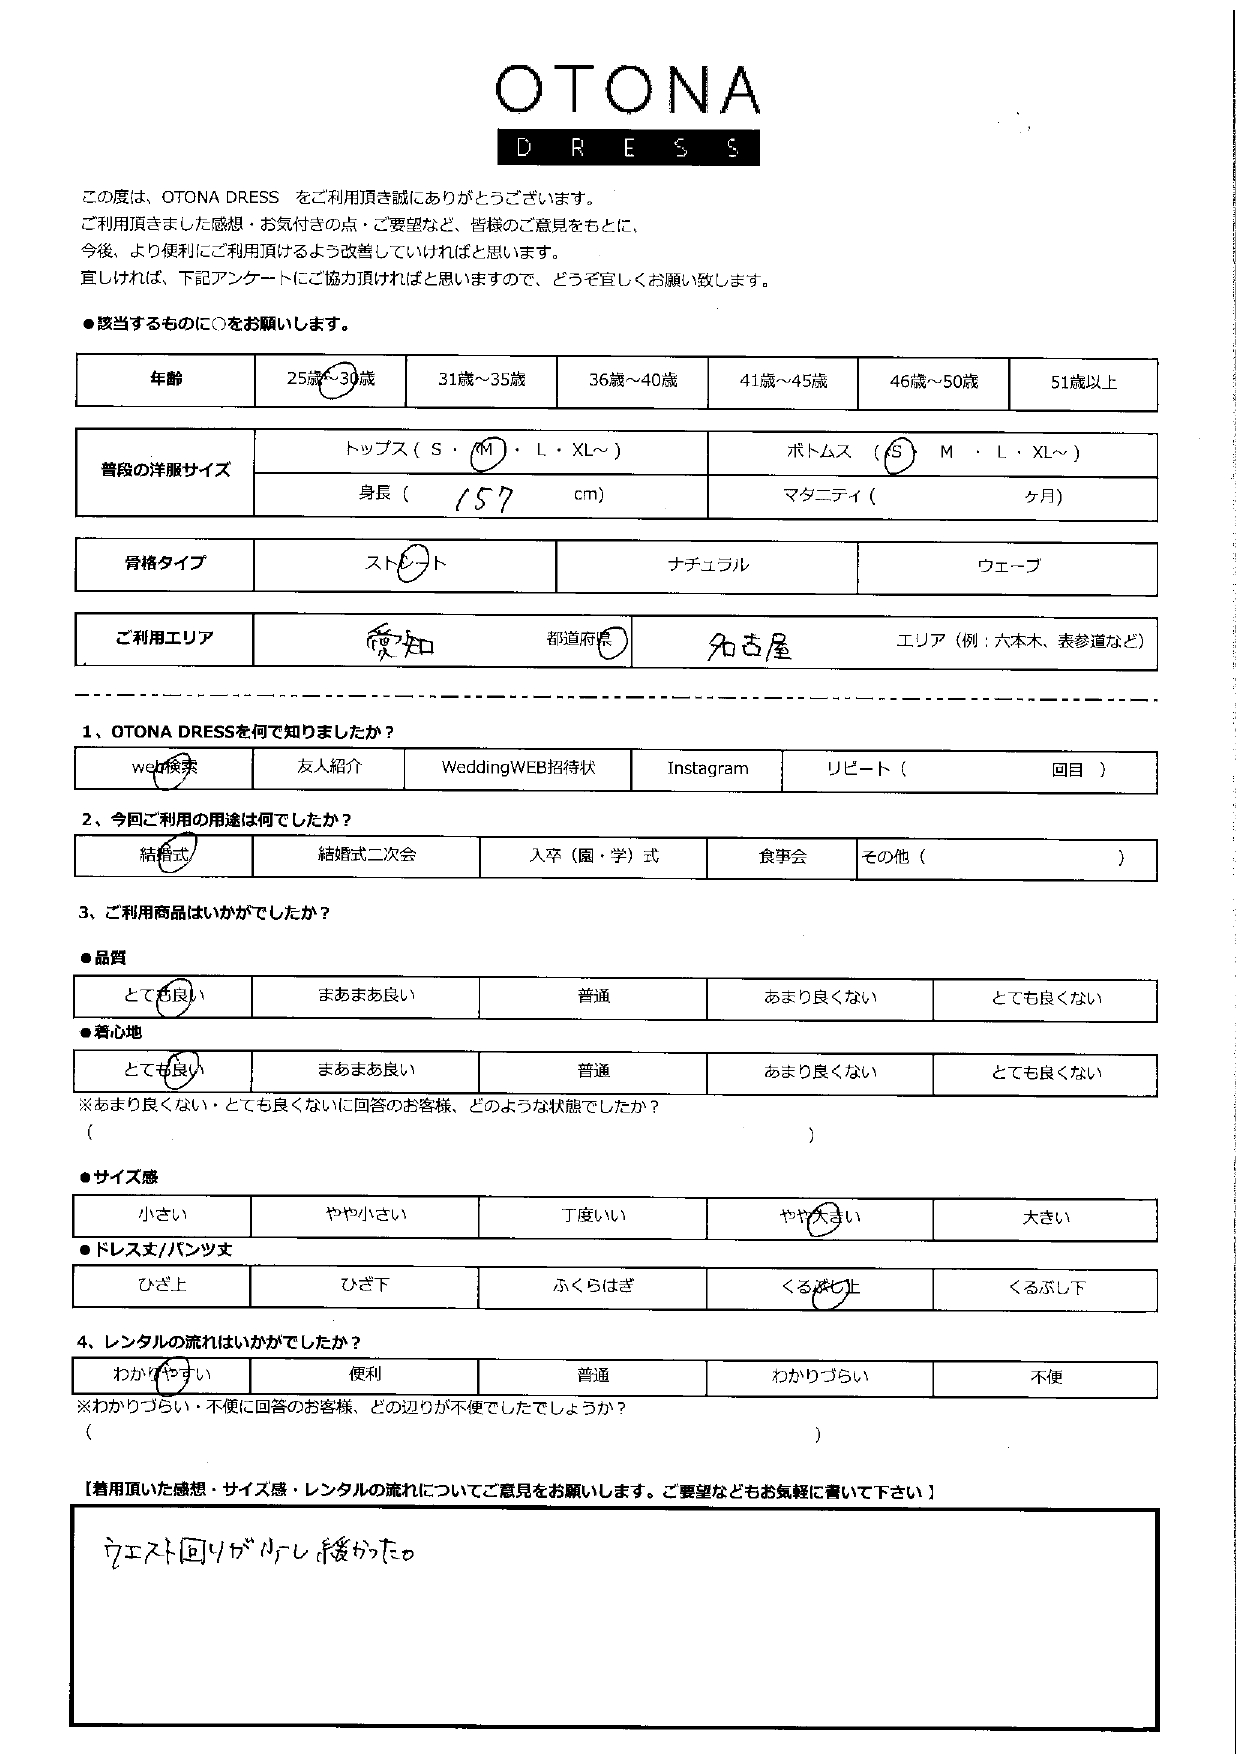 OTONA
DRESS
この度は、OTONA DRESS をご利用頂き誠にありがとうございます。
ご利用頂きました感想・お気付きの点・ご要望など、皆様のご意見をもとに、
今後、より便利にご利用頂けるよう改善していければと思います。
宜しければ、下記アンケートにご協力頂ければと思いますので、どうぞ宜しくお願い致します。
●該当するものに○をお願いします。
年齢 25歳～30歳 31歳～35歳 36歳～40歳 41歳～45歳 46歳～50歳 51歳以上
普段の洋服サイズ トップス ( S ・ M ・ L ・ XL～ ) ボトムス ( S ・ M ・ L ・ XL～ )
身長 ( 157 cm) マタニティ ( ヶ月)
骨格タイプ ストレート ナチュラル ウェーブ
ご利用エリア 愛知 都道府県 名古屋 エリア（例：六本木、表参道など）
1、OTONA DRESSを何で知りましたか？
web検索 友人紹介 WeddingWEB招待状 Instagram リピート ( 回目 )
2、今回ご利用の用途は何でしたか？
結婚式 結婚式二次会 入卒（園・学）式 食事会 その他 ( )
3、ご利用商品はいかがでしたか？
●品質
とても良い まあまあ良い 普通 あまり良くない とても良くない
●着心地
とても良い まあまあ良い 普通 あまり良くない とても良くない
※あまり良くない・とても良くないに回答のお客様、どのような状態でしたか？
( )
●サイズ感
小さい やや小さい 丁度いい やや大きい 大きい
●ドレス丈/パンツ丈
ひざ上 ひざ下 ふくらはぎ くるぶし上 くるぶし下
4、レンタルの流れはいかがでしたか？
わかりやすい 便利 普通 わかりづらい 不便
※わかりづらい・不便に回答のお客様、どの辺りが不便でしたでしょうか？
( )
【着用頂いた感想・サイズ感・レンタルの流れについてご意見をお願いします。ご要望などもお気軽に書いて下さい】
ウエスト回りが少し緩かった。